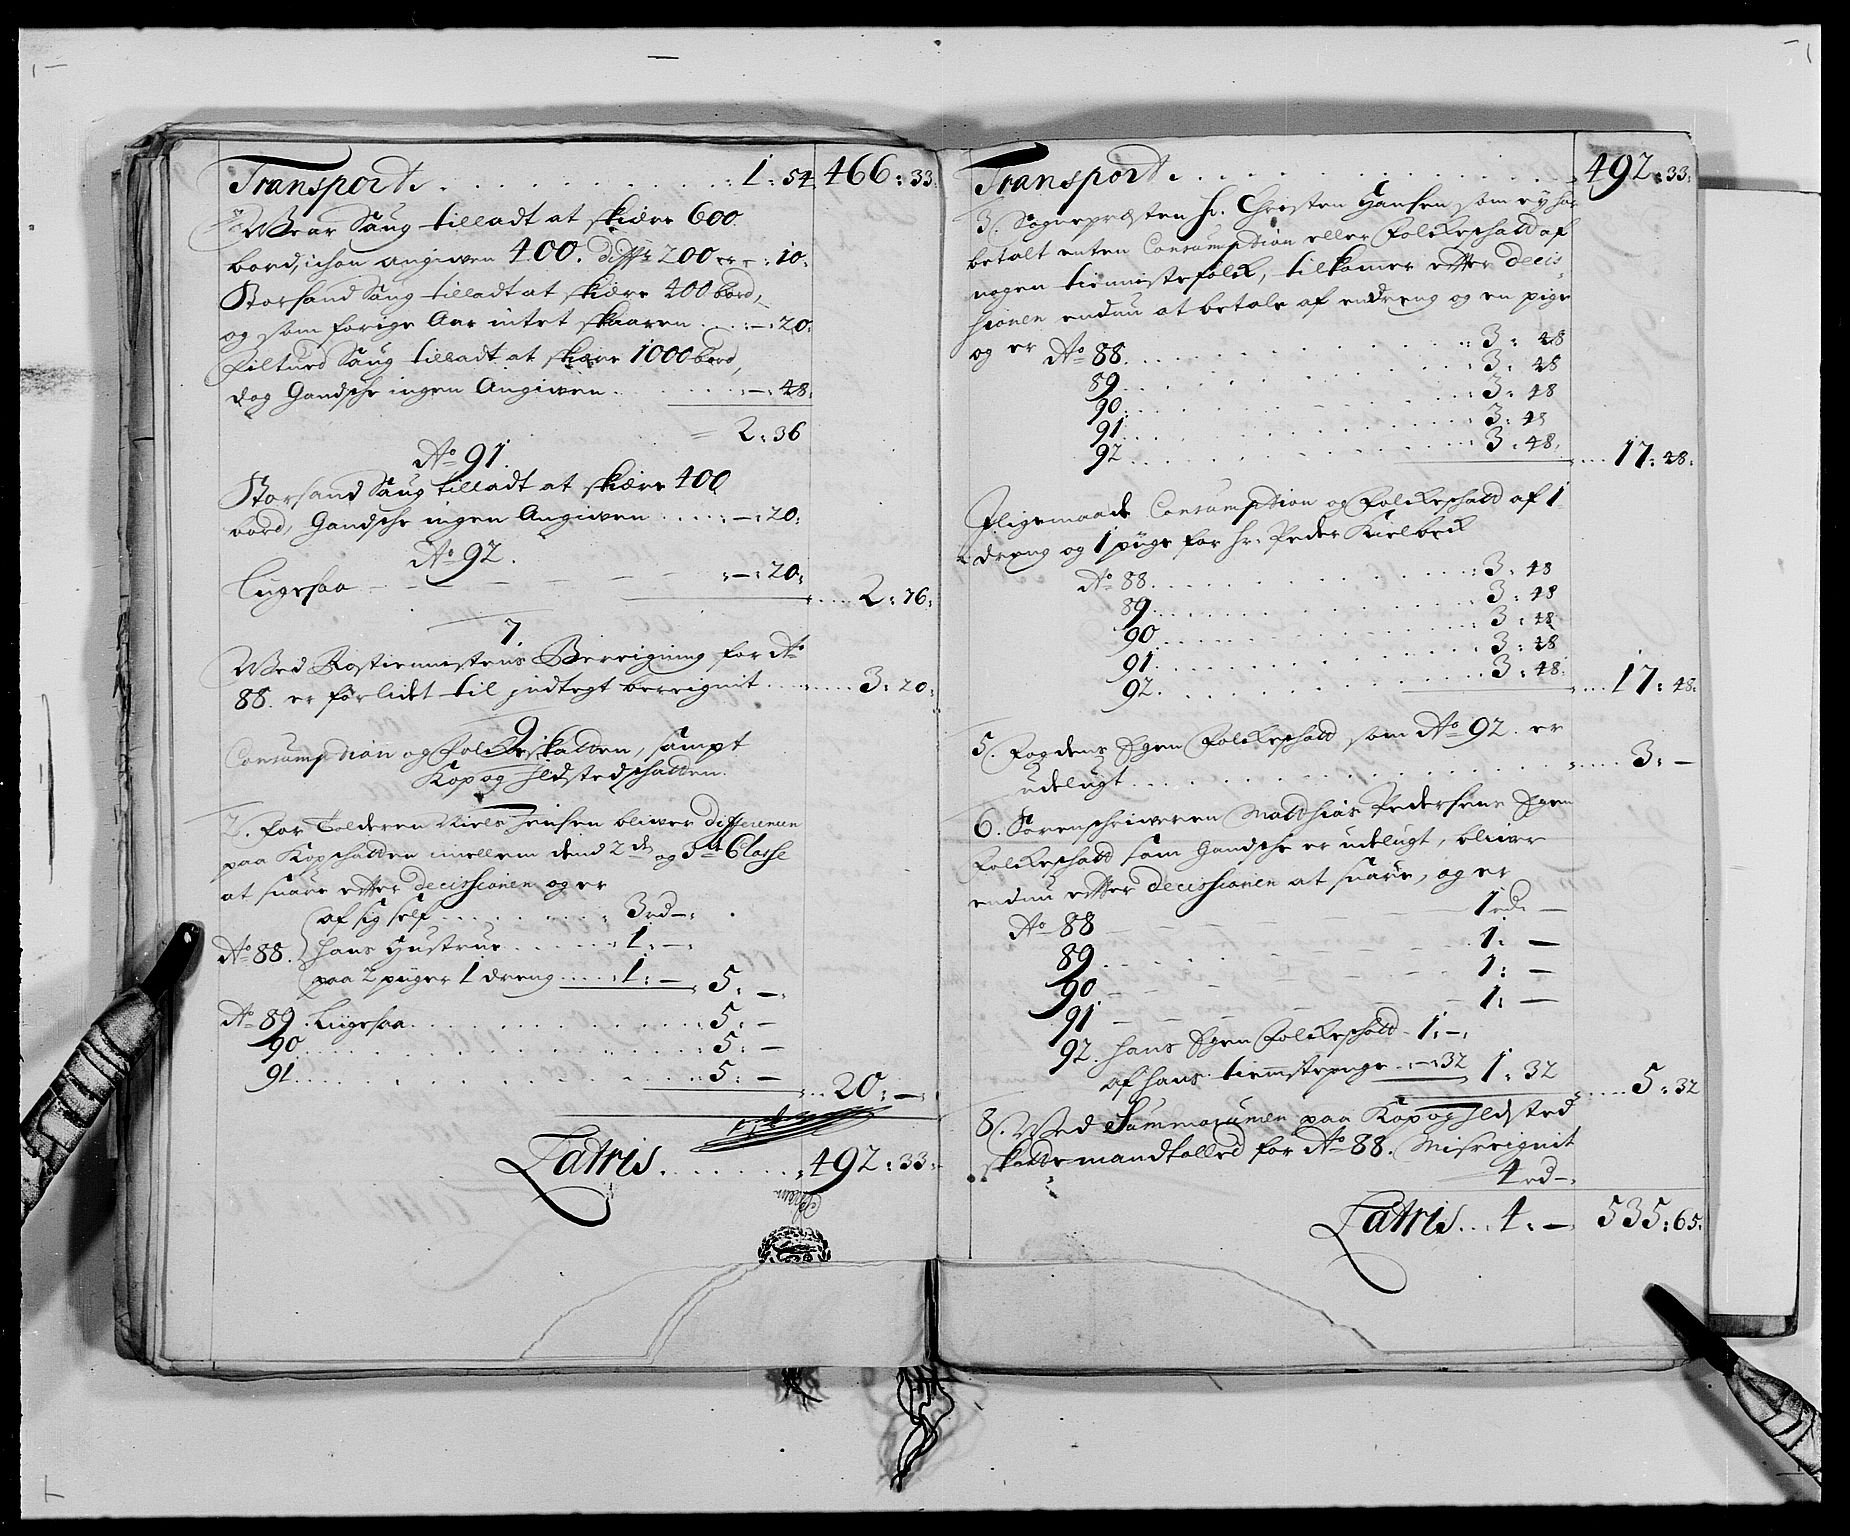 Transport . . . . . . . . . . . 1 : 54 466 : 33
Wear Saug tilladt at skiære 600
bord, ichon angiwen 400. diffr 200 er – : 10 :
Storsand Saug tilladt at skiære 400 bord,
og som forige Aar intet skaaren . . . – : 20 :
Filtued Saug tilladt at skiære 1000 bord,
dog Gandsche ingen Angiwen . . . . . – : 48 :
2 : 36
Ao 91.
Storsand Saug tilladt at skiære 400
bord, Gandsche ingen Angiwen . . . . – : 20 :
Ao 92.
Liigesaa – – – – – – : – : 20 : . . . . 2 : 76 :
7.
Wed Rostiennistens Beregning for Ao
88. er forlidet til jndtegt beregnit . . . . . . . 3 : 20 :
9
Consumption og Folcke skatten, sampt
Kop og Jldstedschatten.
2. for Tolderen Niels Jensen bliwer differencen
paa Kopschatten imellem dend 2den og 3de Classe
at suare efter decissionen og er
af sig self . . . . . . . 3 rd – :
Ao 88. hans Hustrue . . . . . . 1 : – :
paa 2 piiger 1 dreng . . . . 1 : – 5 : – :
Ao 89. Liigesaa . . . . . . . . . . . 5 : –
90 . . . . . . . . . . . . . . . 5 : –
91 . . . . . . . . . . . . . . . 5 : –
. . . 20 : – :
Latris . . . . . . . 492 : 33 :
Transport . . . . . . . . . . . . . . 492 : 33 :
3. Sognepræsten hr. Chresten Hansen som ey har
betalt enten Consumption eller Folckeschatt af
nogen tiennistefolck, tilkomer efter decis-
sionen endnu at betale af en dreng og en pige
og er Ao 88 . . . . . . . . . . . 3 : 48
89 . . . . . . . . . . . 3 : 48
90 . . . . . . . . . . . 3 : 48
91 . . . . . . . . . . . 3 : 48
92 . . . . . . . . . . . 3 : 48 . . . . 17 : 48 :
Jligemaade Consumption og Folckeschatt af 1
dreng og 1 piige for hr. Peder Kielbeck
Ao 88 . . . . . . . . . . . 3 : 48
89 . . . . . . . . . . . 3 : 48
90 . . . . . . . . . . . 3 : 48
91 . . . . . . . . . . . 3 : 48
92 . . . . . . . . . . . 3 : 48 . . . . 17 : 48 :
5. Fogdens Egen Folckeschatt som Ao 92. er
udelugt . . . . . . . . . . . . . . . . . 3 : –
6. Sorenschriweren Matthias Pedersens Egen
Folckeschatt som Gandsche er udelugt, bliwer
endnu efter decissionen at suare, og er
Ao 88 – – – – – – 1 rd –
89 . . . . . . . . . . . 1 : –
90 – – – – – – 1 : –
91 – – – – – – 1 : –
92. hans Egen Folckeschatt – 1 : – :
af hans tiennistepenge – : 32 1 : 32 . . . . 5 : 32
8. Wed Summarumen paa Kop og Jldsted
skattemandtalled for Ao 88. Misreignit
4 rd – :
Latris . . . 4 : – 535 : 65 :